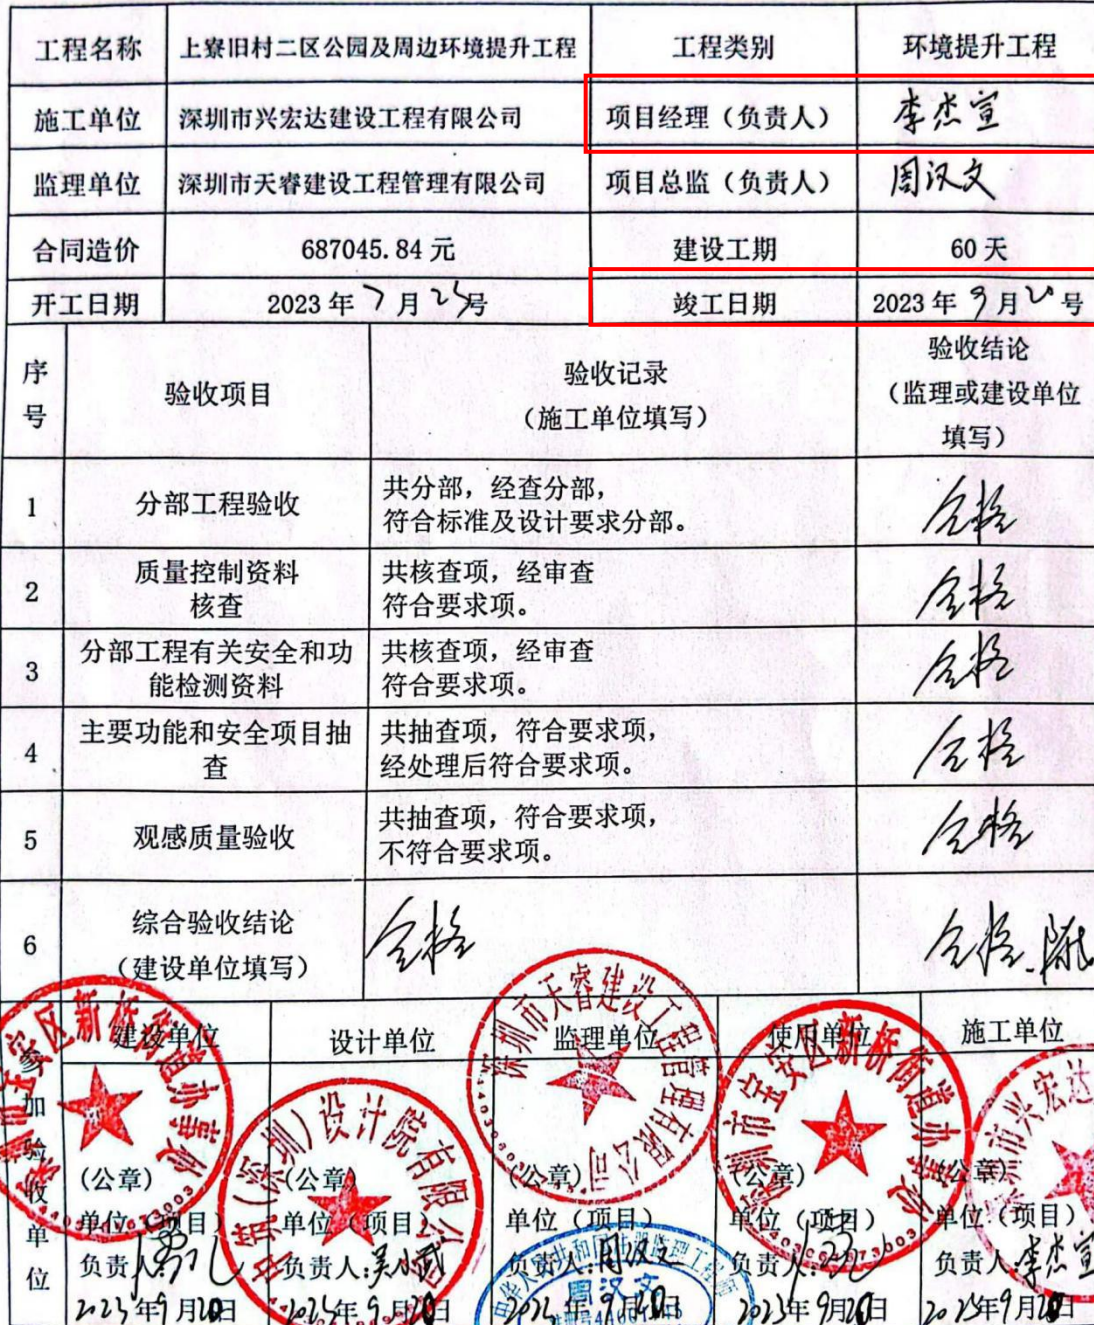 工程名称 上寮旧村二区公园及周边环境提升工程 工程类别 环境提升工程
施工单位 深圳市兴宏达建设工程有限公司 项目经理（负责人） 李杰宣
监理单位 深圳市天睿建设工程管理有限公司 项目总监（负责人） 周汉文
合同造价 687045.84 元 建设工期 60 天
开工日期 2023 年 7 月 23 号 竣工日期 2023 年 9 月 20 号
序号 验收项目 验收记录
（施工单位填写）
验收结论
（监理或建设单位
填写）
1 分部工程验收 共分部，经查分部，
符合标准及设计要求分部。 合格
2 质量控制资料
核查
共核查项，经审查
符合要求项。 合格
3 分部工程有关安全和功
能检测资料
共核查项，经审查
符合要求项。 合格
4 主要功能和安全项目抽
查
共抽查项，符合要求项，
经处理后符合要求项。 合格
5 观感质量验收 共抽查项，符合要求项，
不符合要求项。 合格
6 综合验收结论
（建设单位填写） 合格 合格
参加验收单位
建设单位 设计单位 监理单位 使用单位 施工单位
（公章） （公章） （公章） （公章） （公章）
单位（项目） 单位（项目） 单位（项目） 单位（项目） 单位（项目）
负责人： 负责人： 负责人：周汉文 负责人： 负责人：李杰宣
2023年9月20日 2023年9月20日 2023年9月20日 2023年9月20日 2023年9月20日
宝安区新桥街道办事处
（深圳）设计院有限公司
深圳市天睿建设工程管理有限公司
深圳市宝安区新桥街道办事处
深圳市兴宏达
周汉文